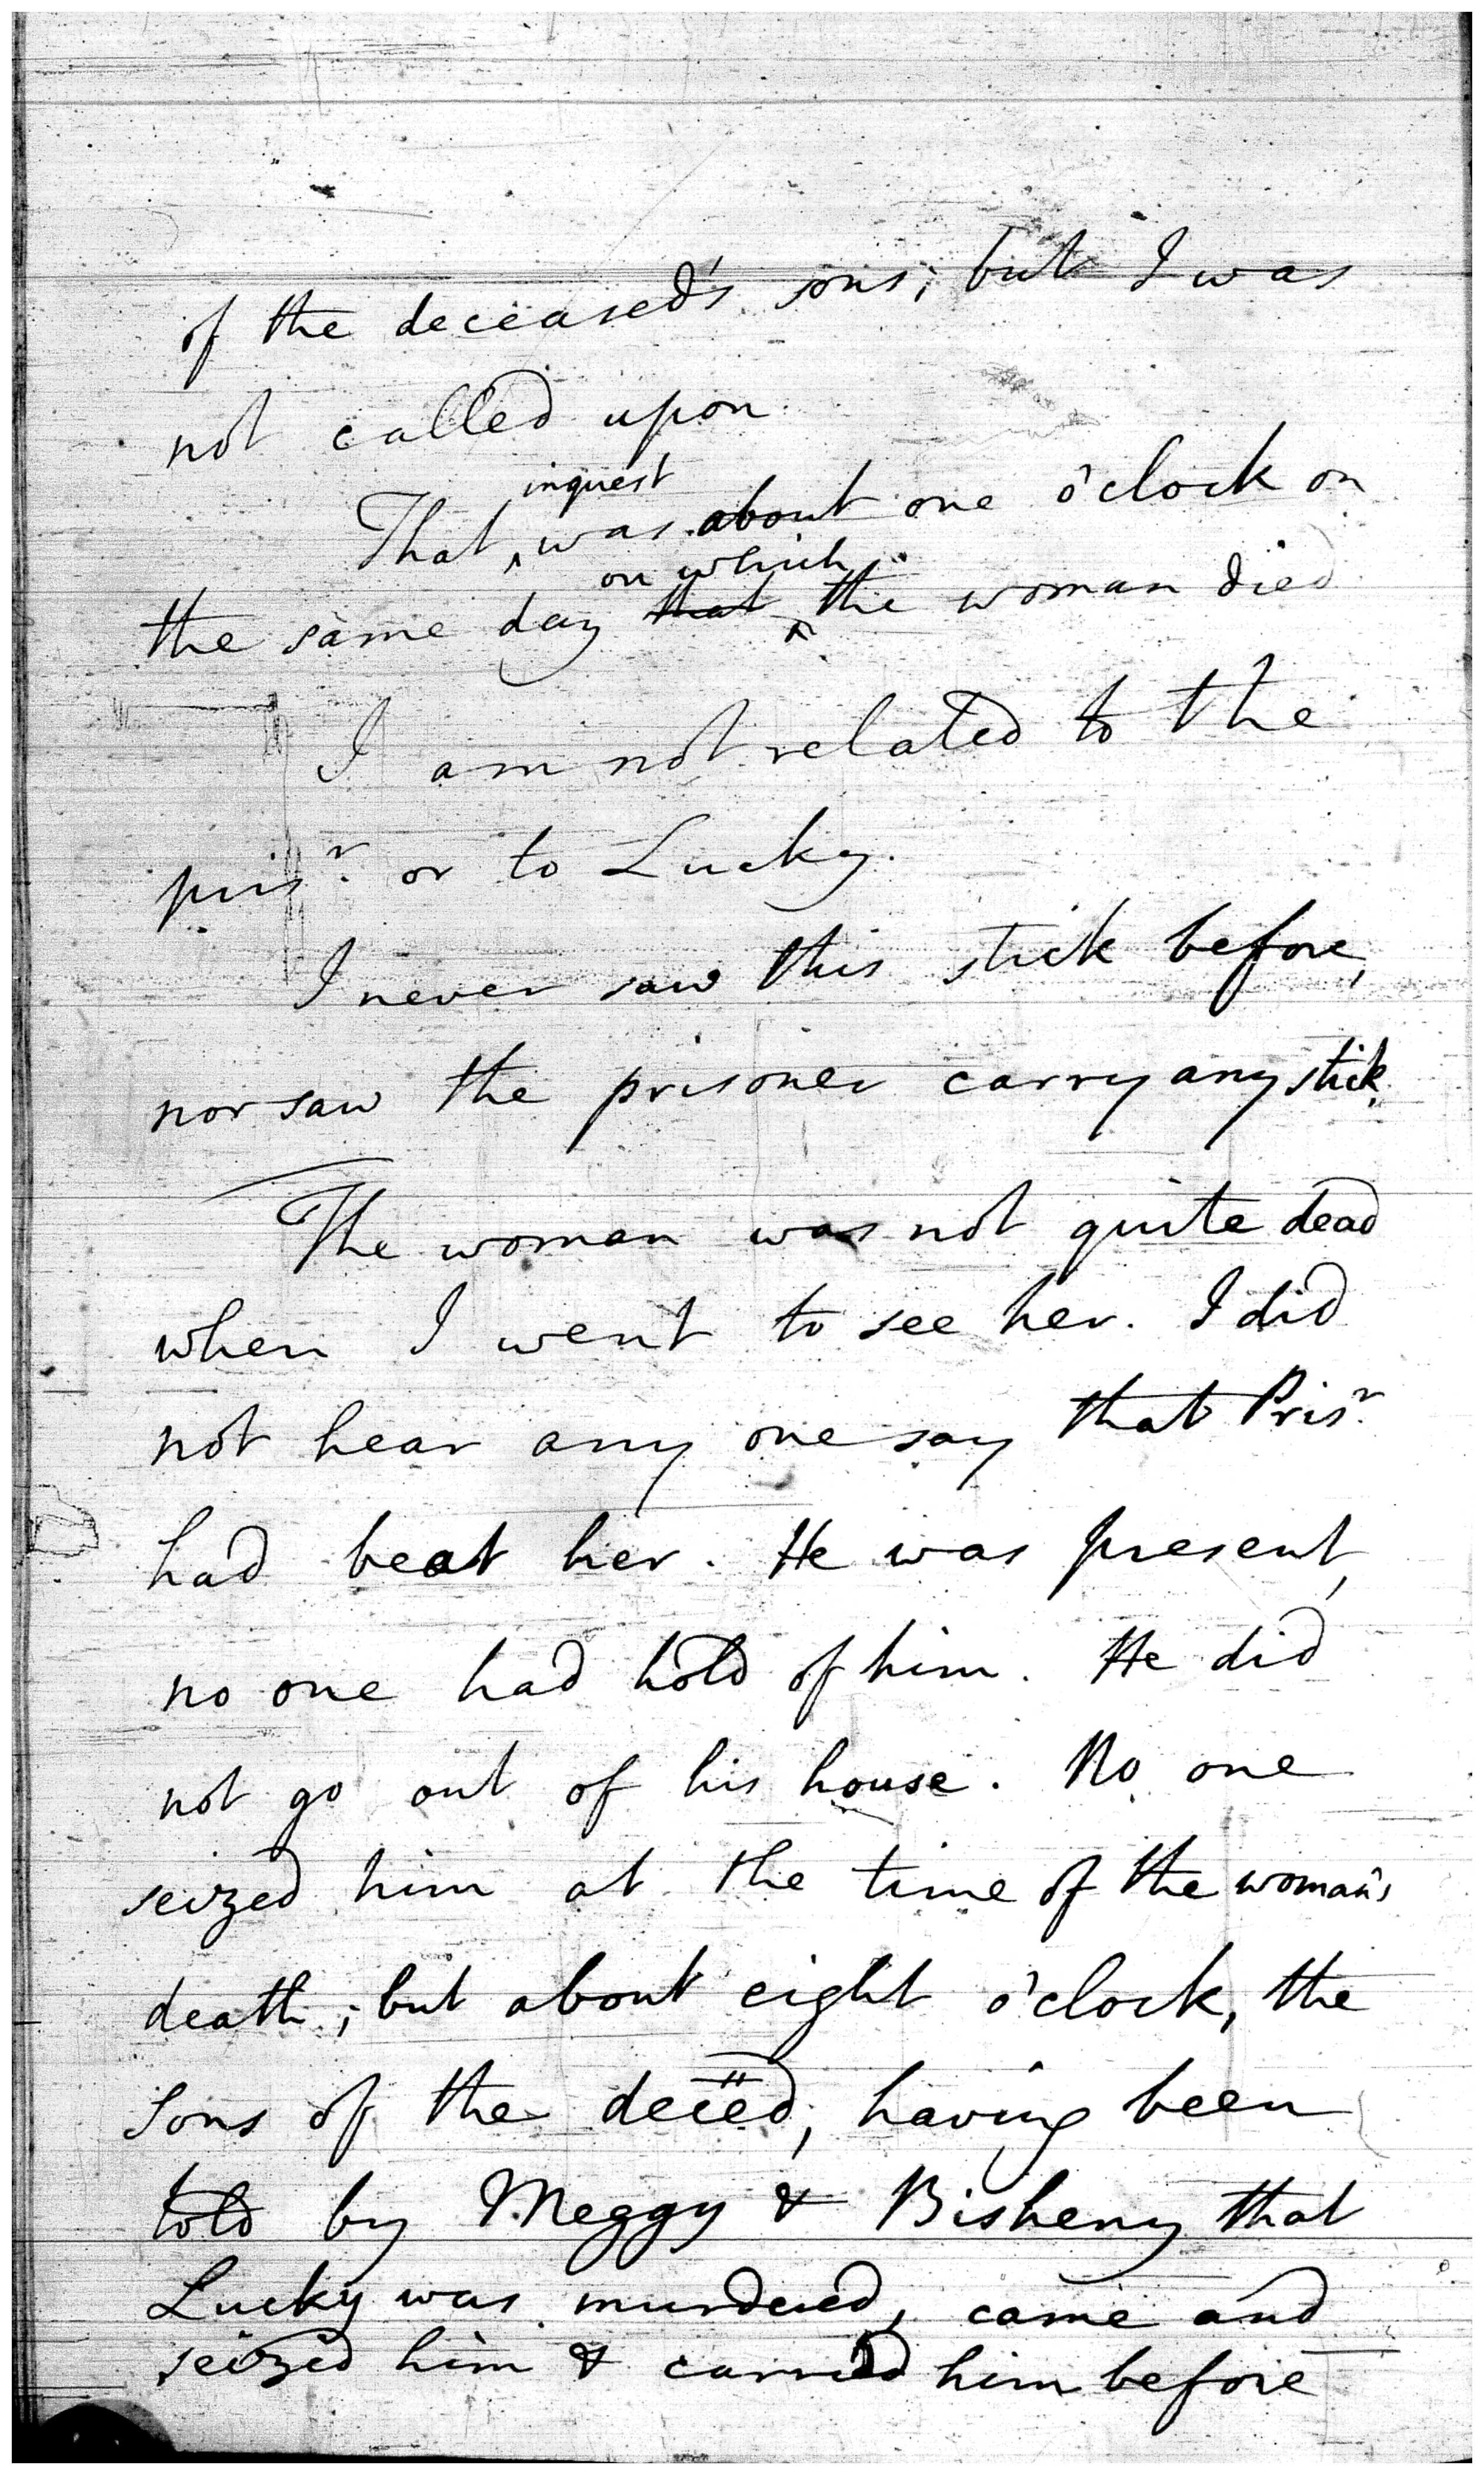 of the deceased's sons; but I was
not called upon.
inquest
That ^ was about one o'clock on
on which
the same day that ^ the woman died
I am not related to the
pris.r or to Lucky.
I never saw this stick before,
nor saw the prisoner carry any stick.
The woman was not quite dead
when I went to see her. I did
not hear any one say that Pris.r
had beat her. He was present,
no one had hold of him. He did
not go out of his house. No one
seized him at the time of the woman's
death; but about eight o'clock, the
Sons of the deced, having been
told by Meggy & Bisheny that
Lucky was murdered, came and
seized him & carried him before